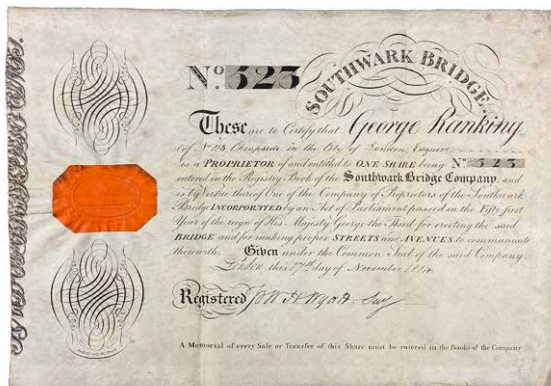 SOUTHWARK BRIDGE.
No. 323
These are to Certify that George Ranking
of No. Cheapside in the City of London Esquire
is a PROPRIETOR of and entitled to ONE SHARE being No. 323
entered in the Registry Book of the Southwark Bridge Company, and
is by Virtue thereof One of the Company of Proprietors of the Southwark
Bridge INCORPORATED by an Act of Parliament passed in the Fifty first
Year of the reign of His Majesty George the Third for erecting the said
BRIDGE and for making proper STREETS and AVENUES to communicate
therewith. Given under the Common Seal of the said Company.
London this 17th day of November 1814
Registered Wyatt Secy
A Memorial of every Sale or Transfer of this Share must be entered in the Books of the Company